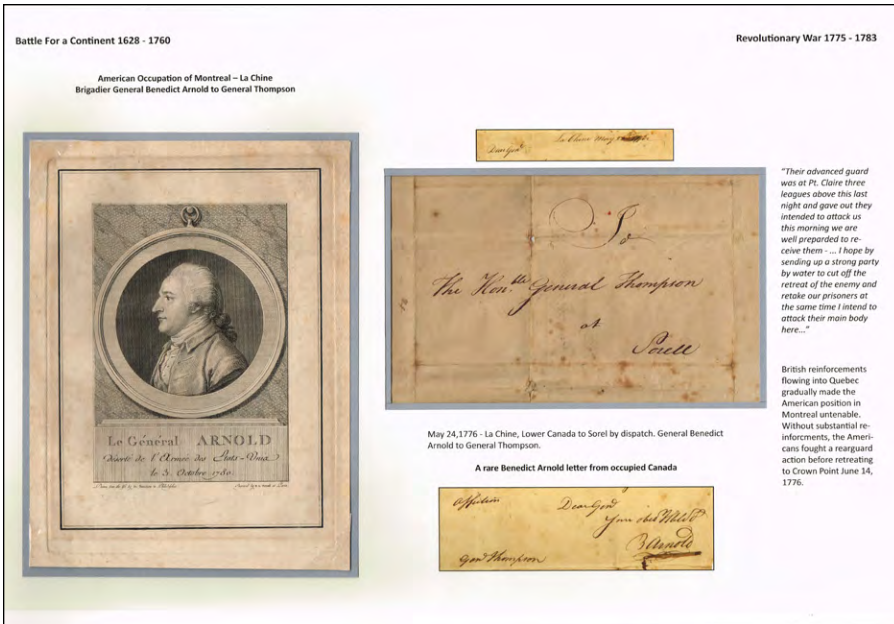 Battle For a Continent 1628 - 1760
Revolutionary War 1775 - 1783
American Occupation of Montreal – La Chine
Brigadier General Benedict Arnold to General Thompson
Le Général ARNOLD
déserté de l'Armée des Etats-Unis
le 3. Octobre 1780.
La Chine May
Dear Genl
To
The Honble General Thompson
at
Sorell
May 24,1776 - La Chine, Lower Canada to Sorel by dispatch. General Benedict
Arnold to General Thompson.
A rare Benedict Arnold letter from occupied Canada
Dear Genl
B Arnold
Genl Thompson
"Their advanced guard
was at Pt. Claire three
leagues above this last
night and gave out they
intended to attack us
this morning we are
well preparded to re-
ceive them - ... I hope by
sending up a strong party
by water to cut off the
retreat of the enemy and
retake our prisoners at
the same time I intend to
attack their main body
here..."
British reinforcements
flowing into Quebec
gradually made the
American position in
Montreal untenable.
Without substantial re-
inforcments, the Ameri-
cans fought a rearguard
action before retreating
to Crown Point June 14,
1776.